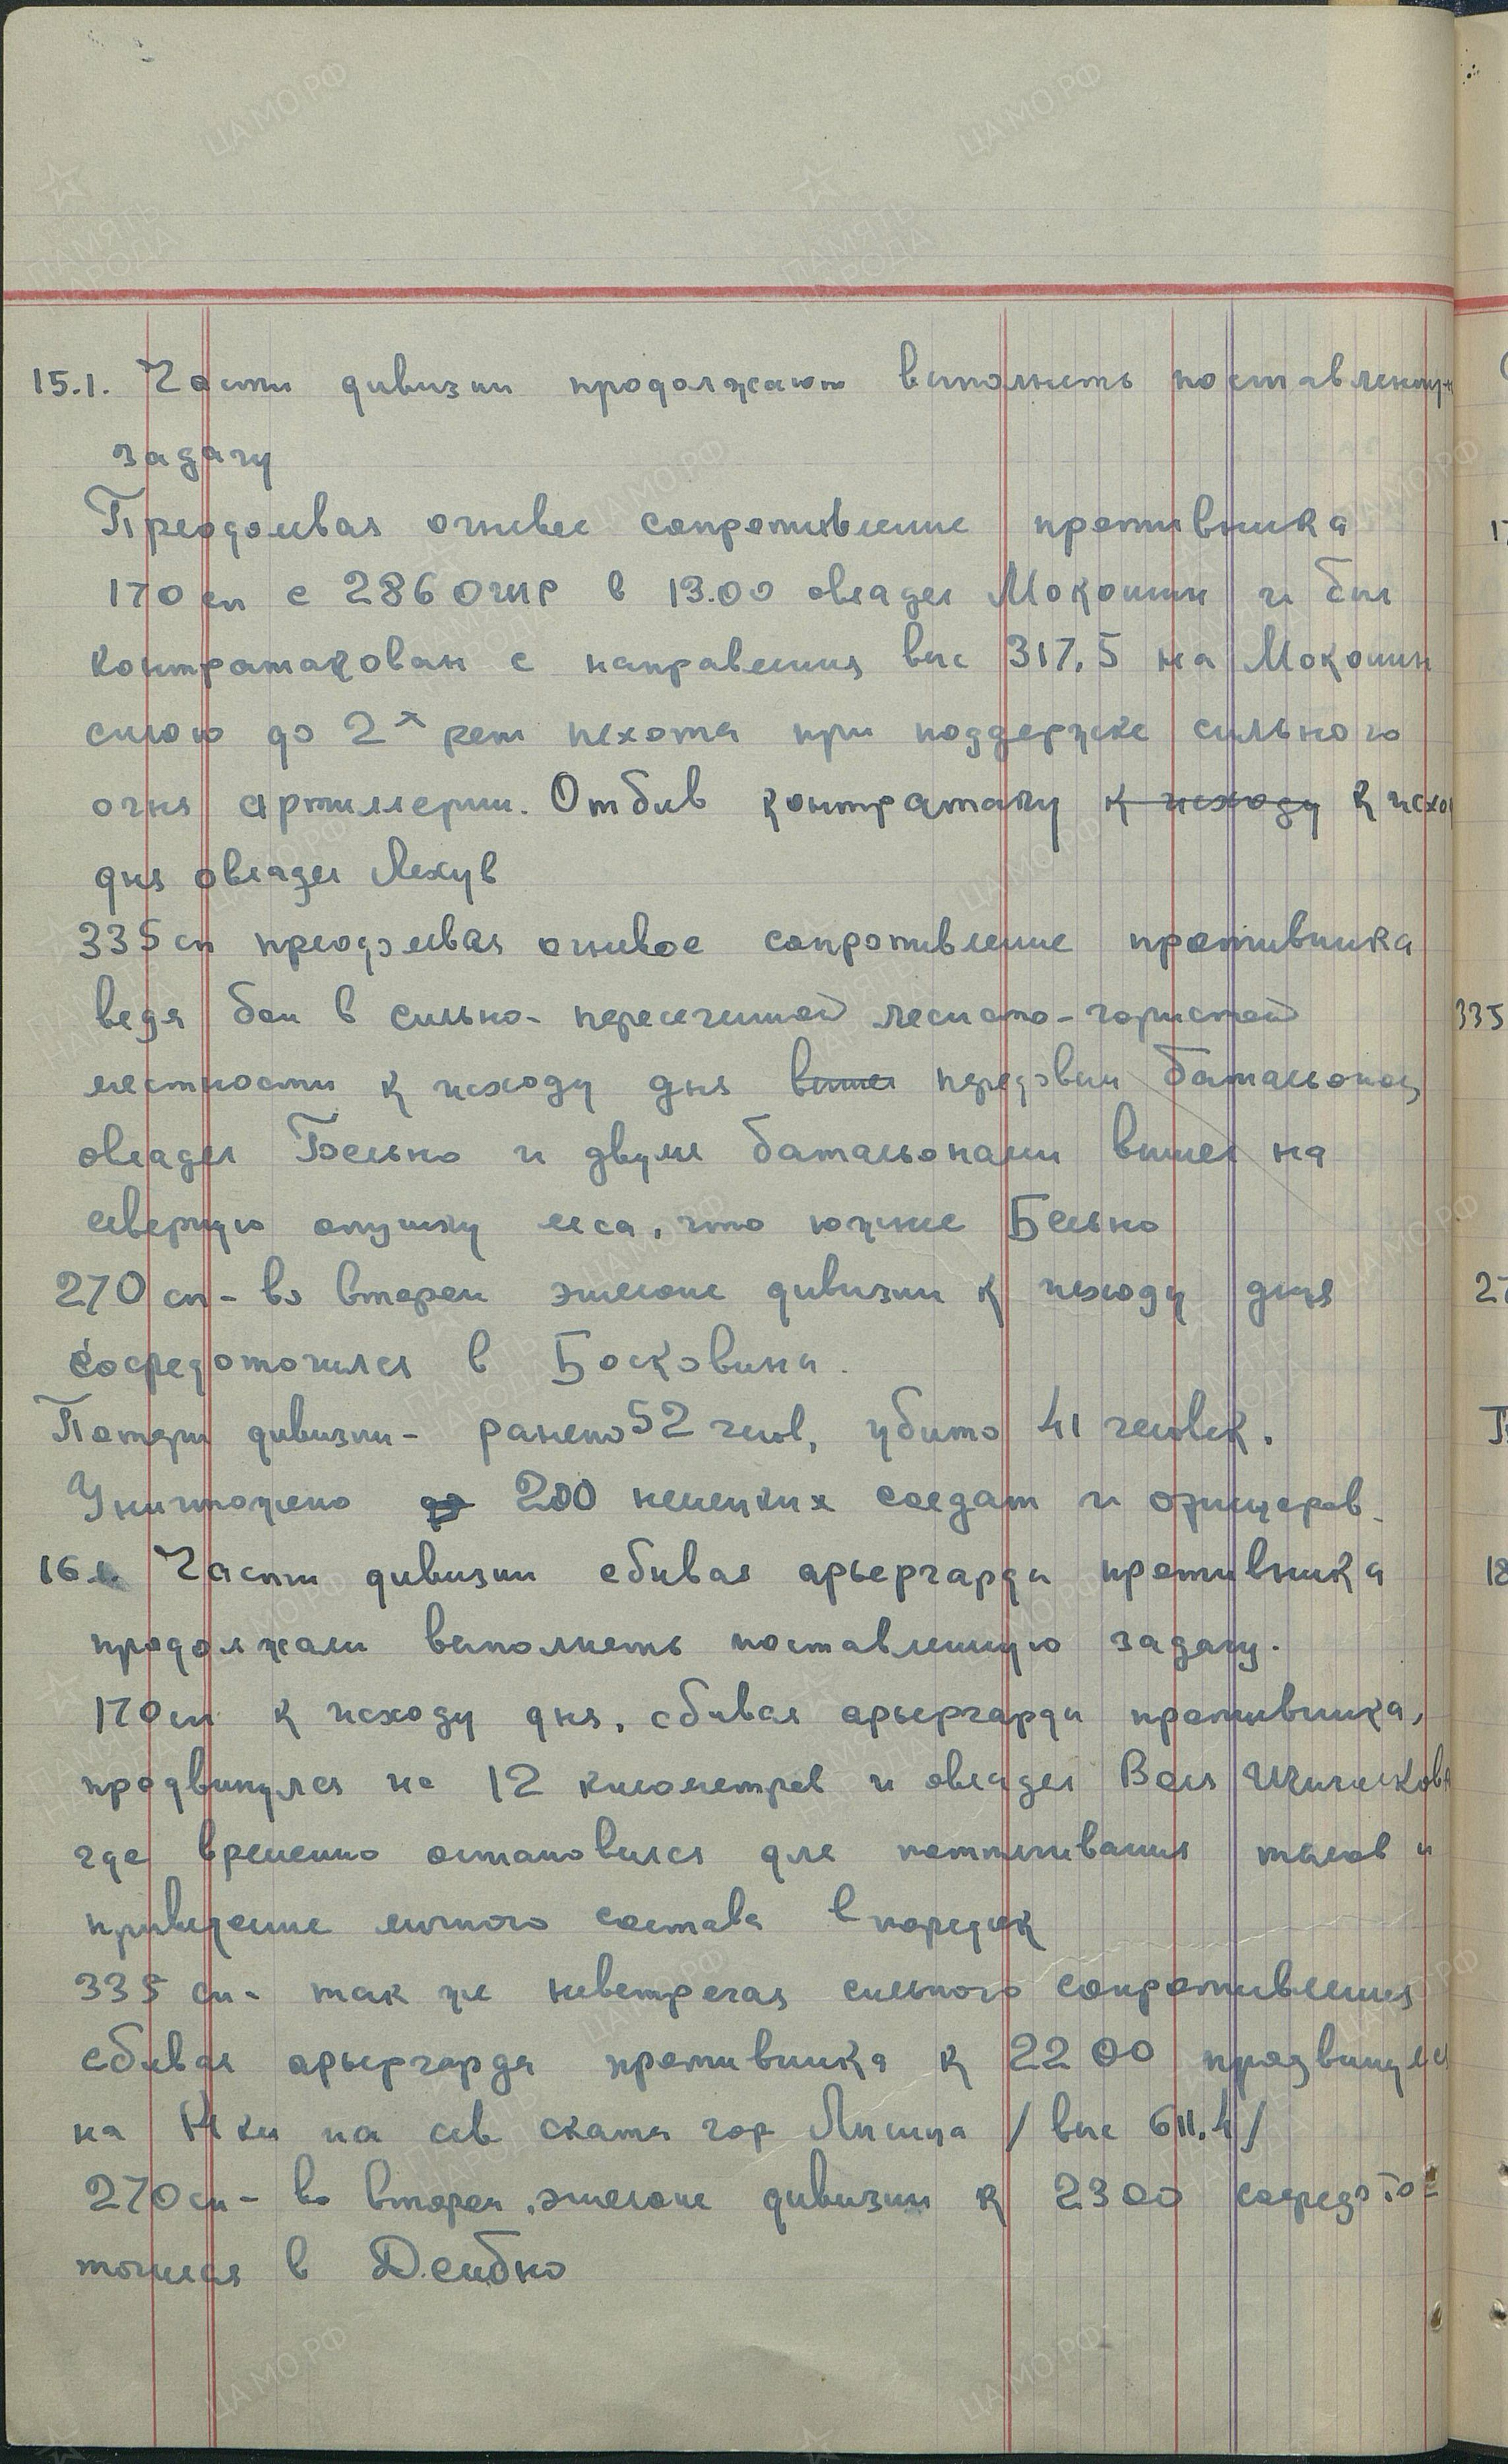 15.1. Части дивизии продолжают выполнять поставленную
задачу
Преодолевая огневое сопротивление противника
170 сп с 286 ОАШР в 13.00 овладел Мокошин и был
контратакован с направления выс 317,5 на Мокошин
силою до 2х рот пехота при поддержке сильного
огня артиллерии. Отбив контратаку к исходу к исхо
дня овладел Лехув
335 сп преодолевая огневое сопротивление противника
ведя бои в сильно- пересеченной лесисто-гористой
местности к исходу дня вышел передовым батальоном
овладел Бельно и двумя батальонами вышел на
северную опушку леса, что южнее Бельно
270 сп - во втором эшелоне дивизии к исходу дня
сосредоточился в Босковина.
Потери дивизии - ранено 52 челов, убито 41 человек.
Уничтожено до 200 немецких солдат и офицеров.
16.1. Части дивизии сбивая арьергарды противника
продолжали выполнять поставленную задачу.
170 сп к исходу дня, сбивая арьергарды противника,
продвинулся на 12 километров и овладел Воля
где временно остановился для подтягивания тылов и
приведение личного состава в порядок
335 сп - так же невстречая сильного сопротивления
сбивая арьергарда противника к 22 00 продвинулся
на 14 км на сев скаты гор Лисица /выс 611.4/
270 сп - во втором эшелоне дивизии к 23 00 сосредото-
точился в Дембно
335
18
ЦАМО РФ
ПАМЯТЬ НАРОДА